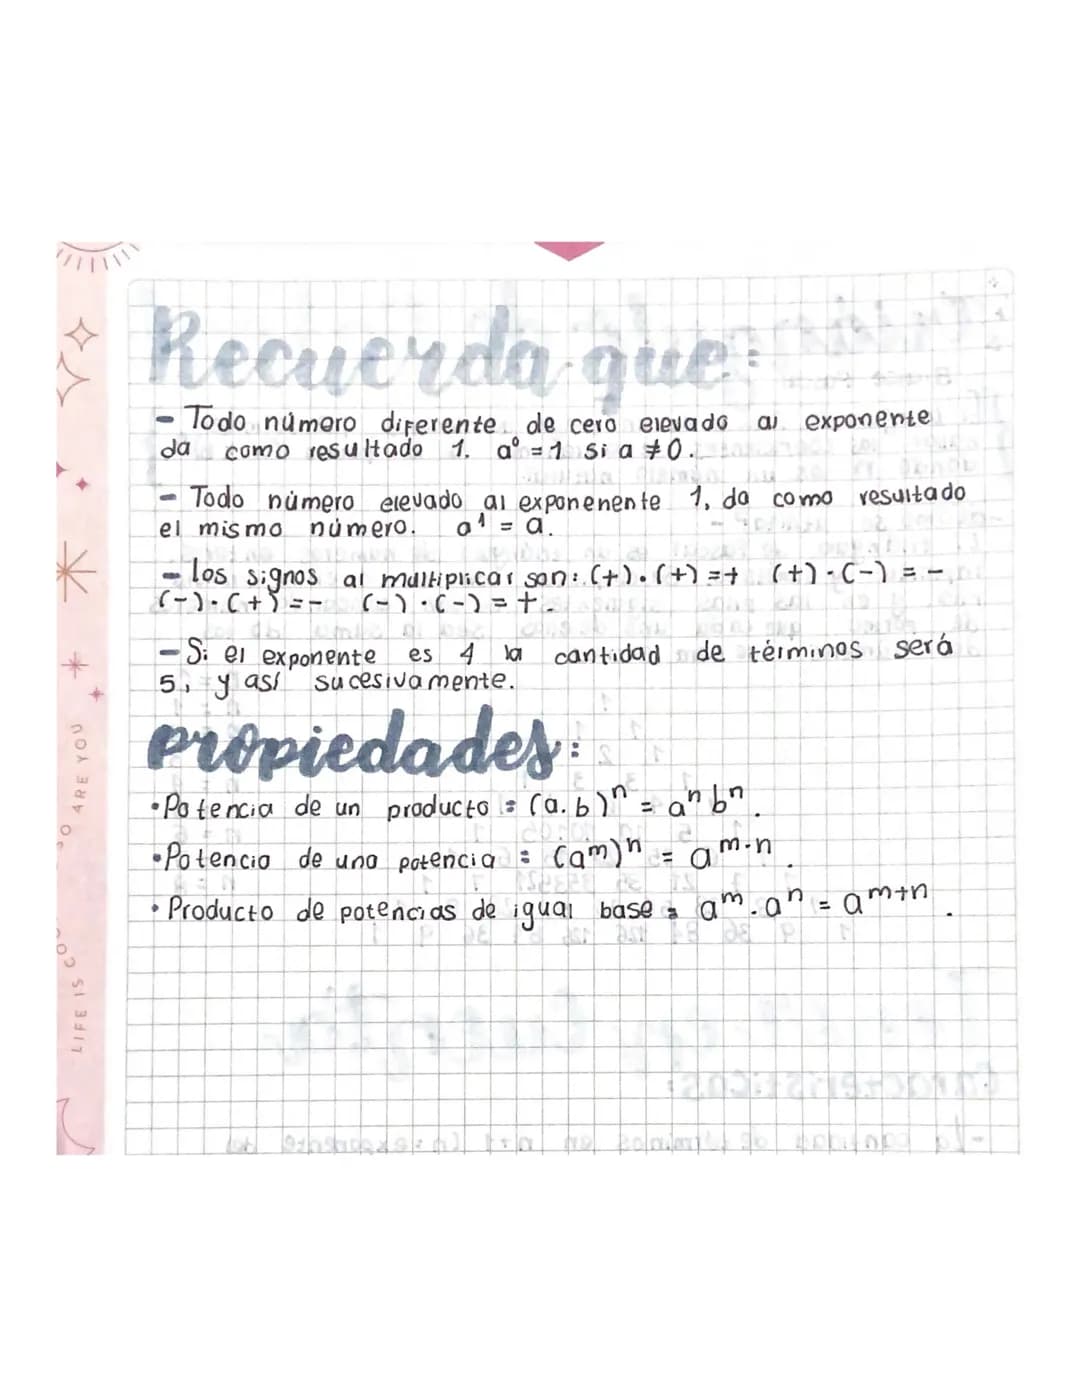 Recuerda que:
- Todo número diferente de cero elevado al exponente
da como resultado 1. a⁰ = 1 si a ≠ 0.
- Todo número elevado al exponenente 1, da como resultado
el mismo número. a¹ = a.
- los signos al multiplicar son: (+).(+) = + (+).(-) = -
(-).(+) = - (-).(-) = + .
- Si el exponente es 4 la cantidad de términos será
5, y así sucesivamente.
propiedades:
• Potencia de un producto : (a.b)ⁿ = aⁿ bⁿ .
• Potencia de una potencia : (aᵐ)ⁿ = aᵐ·ⁿ .
• Producto de potencias de igual base : aᵐ.aⁿ = aᵐ⁺ⁿ .
ARE YOU
LIFE IS